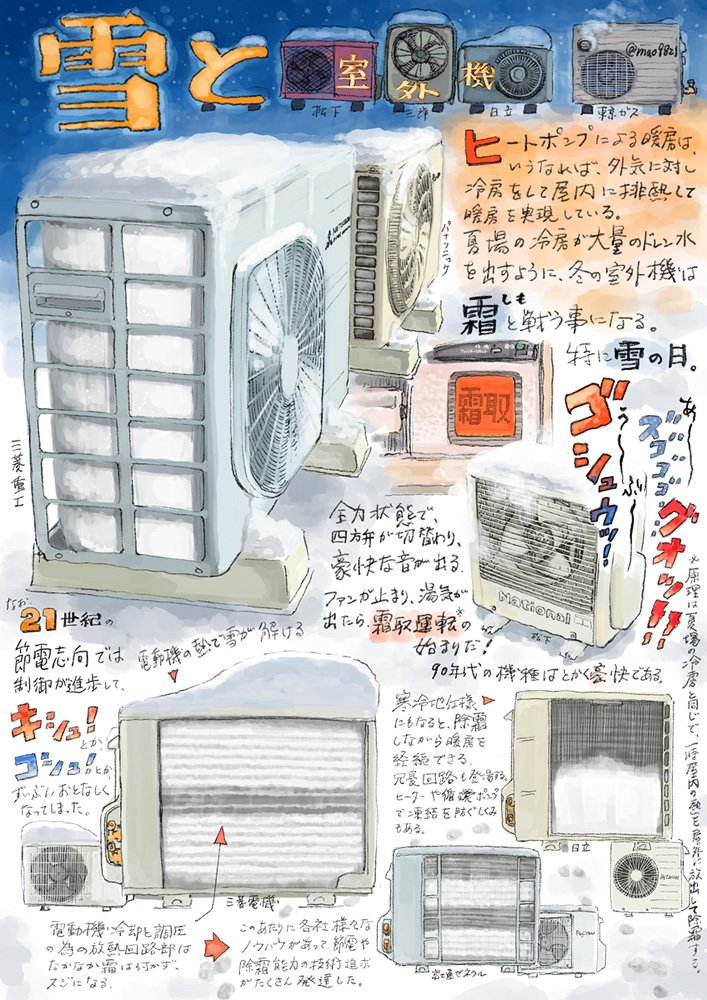 雪と室外機
松下
三洋
日立
東京ガス
@mao9821
ヒートポンプによる暖房は、
いうなれば、外気に対し
冷房をして屋内に排熱して
暖房を実現している。
夏場の冷房が大量のドレン水
を出すように、冬の室外機は
霜と戦う事になる。
しも
特に雪の日。
パナソニック
三菱重工
霜取
ゴシュウッ!
あ〜
う〜
ズゴゴゴゴ
グオッ!!
全力状態で、
四方弁が切替わり、
豪快な音が出る。
ファンが止まり、湯気が
出たら、霜取運転※の
始まりだ!
National
松下
90年代の機種はとかく豪快である。
※原理は夏場の冷房と同じで、一時屋内の熱を屋外に放出して除霜する。
なお、
21世紀の
節電志向では
制御が進歩して、
キシュ!
とか
ゴシュ!とか
ずいぶんおとなしく
なってしまった。
電動機の熱で雪が解ける
三菱電機
電動機冷却と調圧
の為の放熱回路部は
なかなか霜は付かず、
スジになる。
このあたりに各社様々な
ノウハウがあって、節電や
除霜能力の技術進歩
がたくさん発達した。
寒冷地仕様
にもなると、除霜
しながら暖房を
継続できる
冗長回路も登場する。
ヒーターや循環ポンプ
で凍結を防ぐしくみ
もある。
日立
HITACHI
富士通ゼネラル
Fujitsu